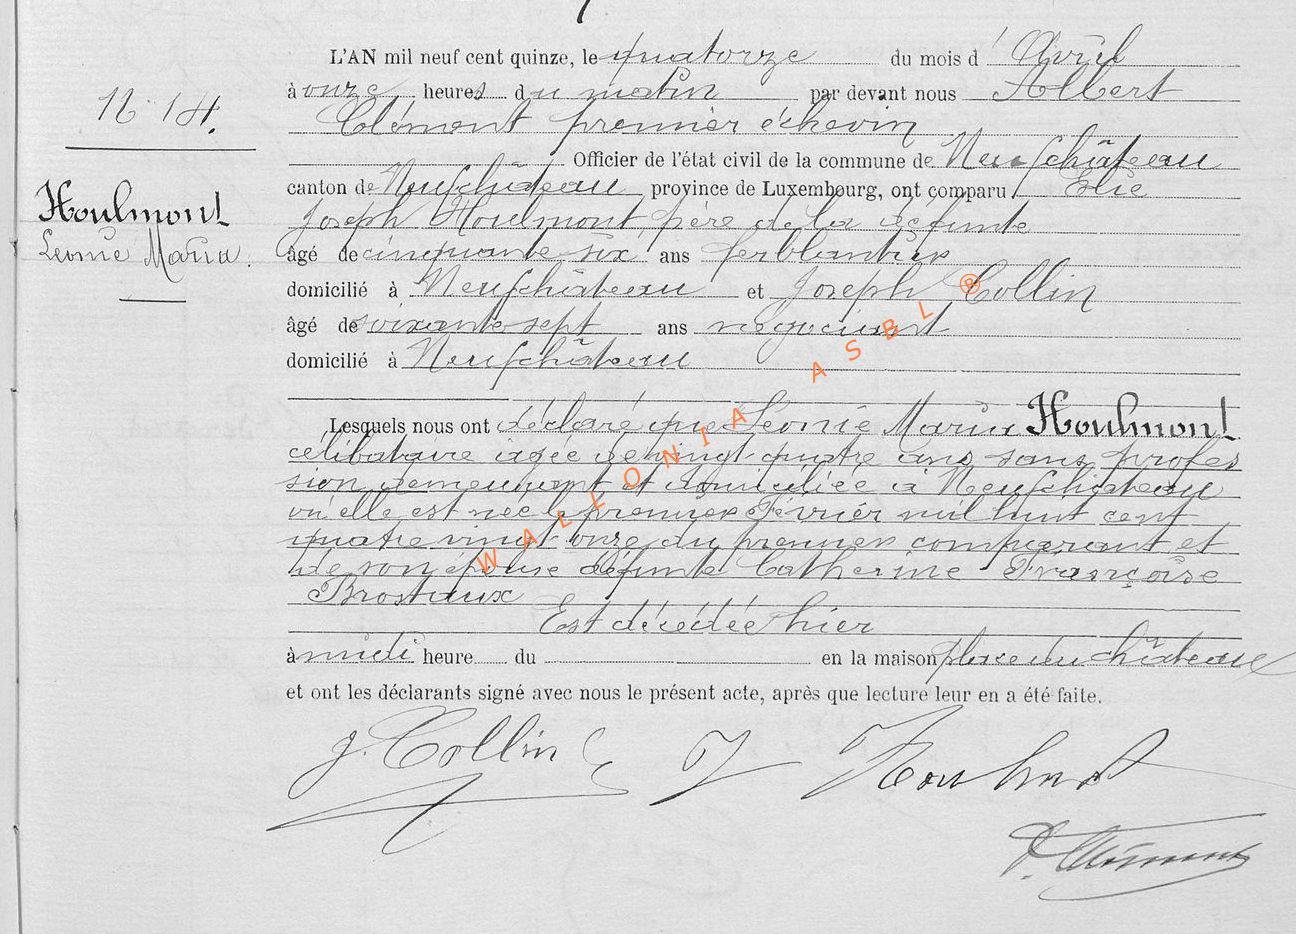 L'AN mil neuf cent quinze, le quatorze du mois d'Avril
à onze heures du matin par devant nous Albert
N. 14.
Clément premier échevin
Officier de l'état civil de la commune de Neufchâteau
canton de Neufchâteau province de Luxembourg, ont comparu Elie
Houlmont
Joseph Houlmont, père de la défunte
Léonie Maria.
âgé de cinquante six ans ferblantier
domicilié à Neufchâteau et Joseph Collin
âgé de soixante sept ans négociant
domicilié à Neufchâteau
Lesquels nous ont déclaré que Léonie Maria Houlmont
célibataire âgée de vingt-quatre ans sans profes
sion demeurant et domiciliée à Neufchâteau
où elle est née le premier Février mil huit cent
quatre vingt onze du premier comparant et
de son épouse défunte Catherine Françoise
Brostaux
Est décédée hier
à midi heure du en la maison place du château
et ont les déclarants signé avec nous le présent acte, après que lecture leur en a été faite.
J. Collin Houlmont
Clément
WALLONIA ASBL ®